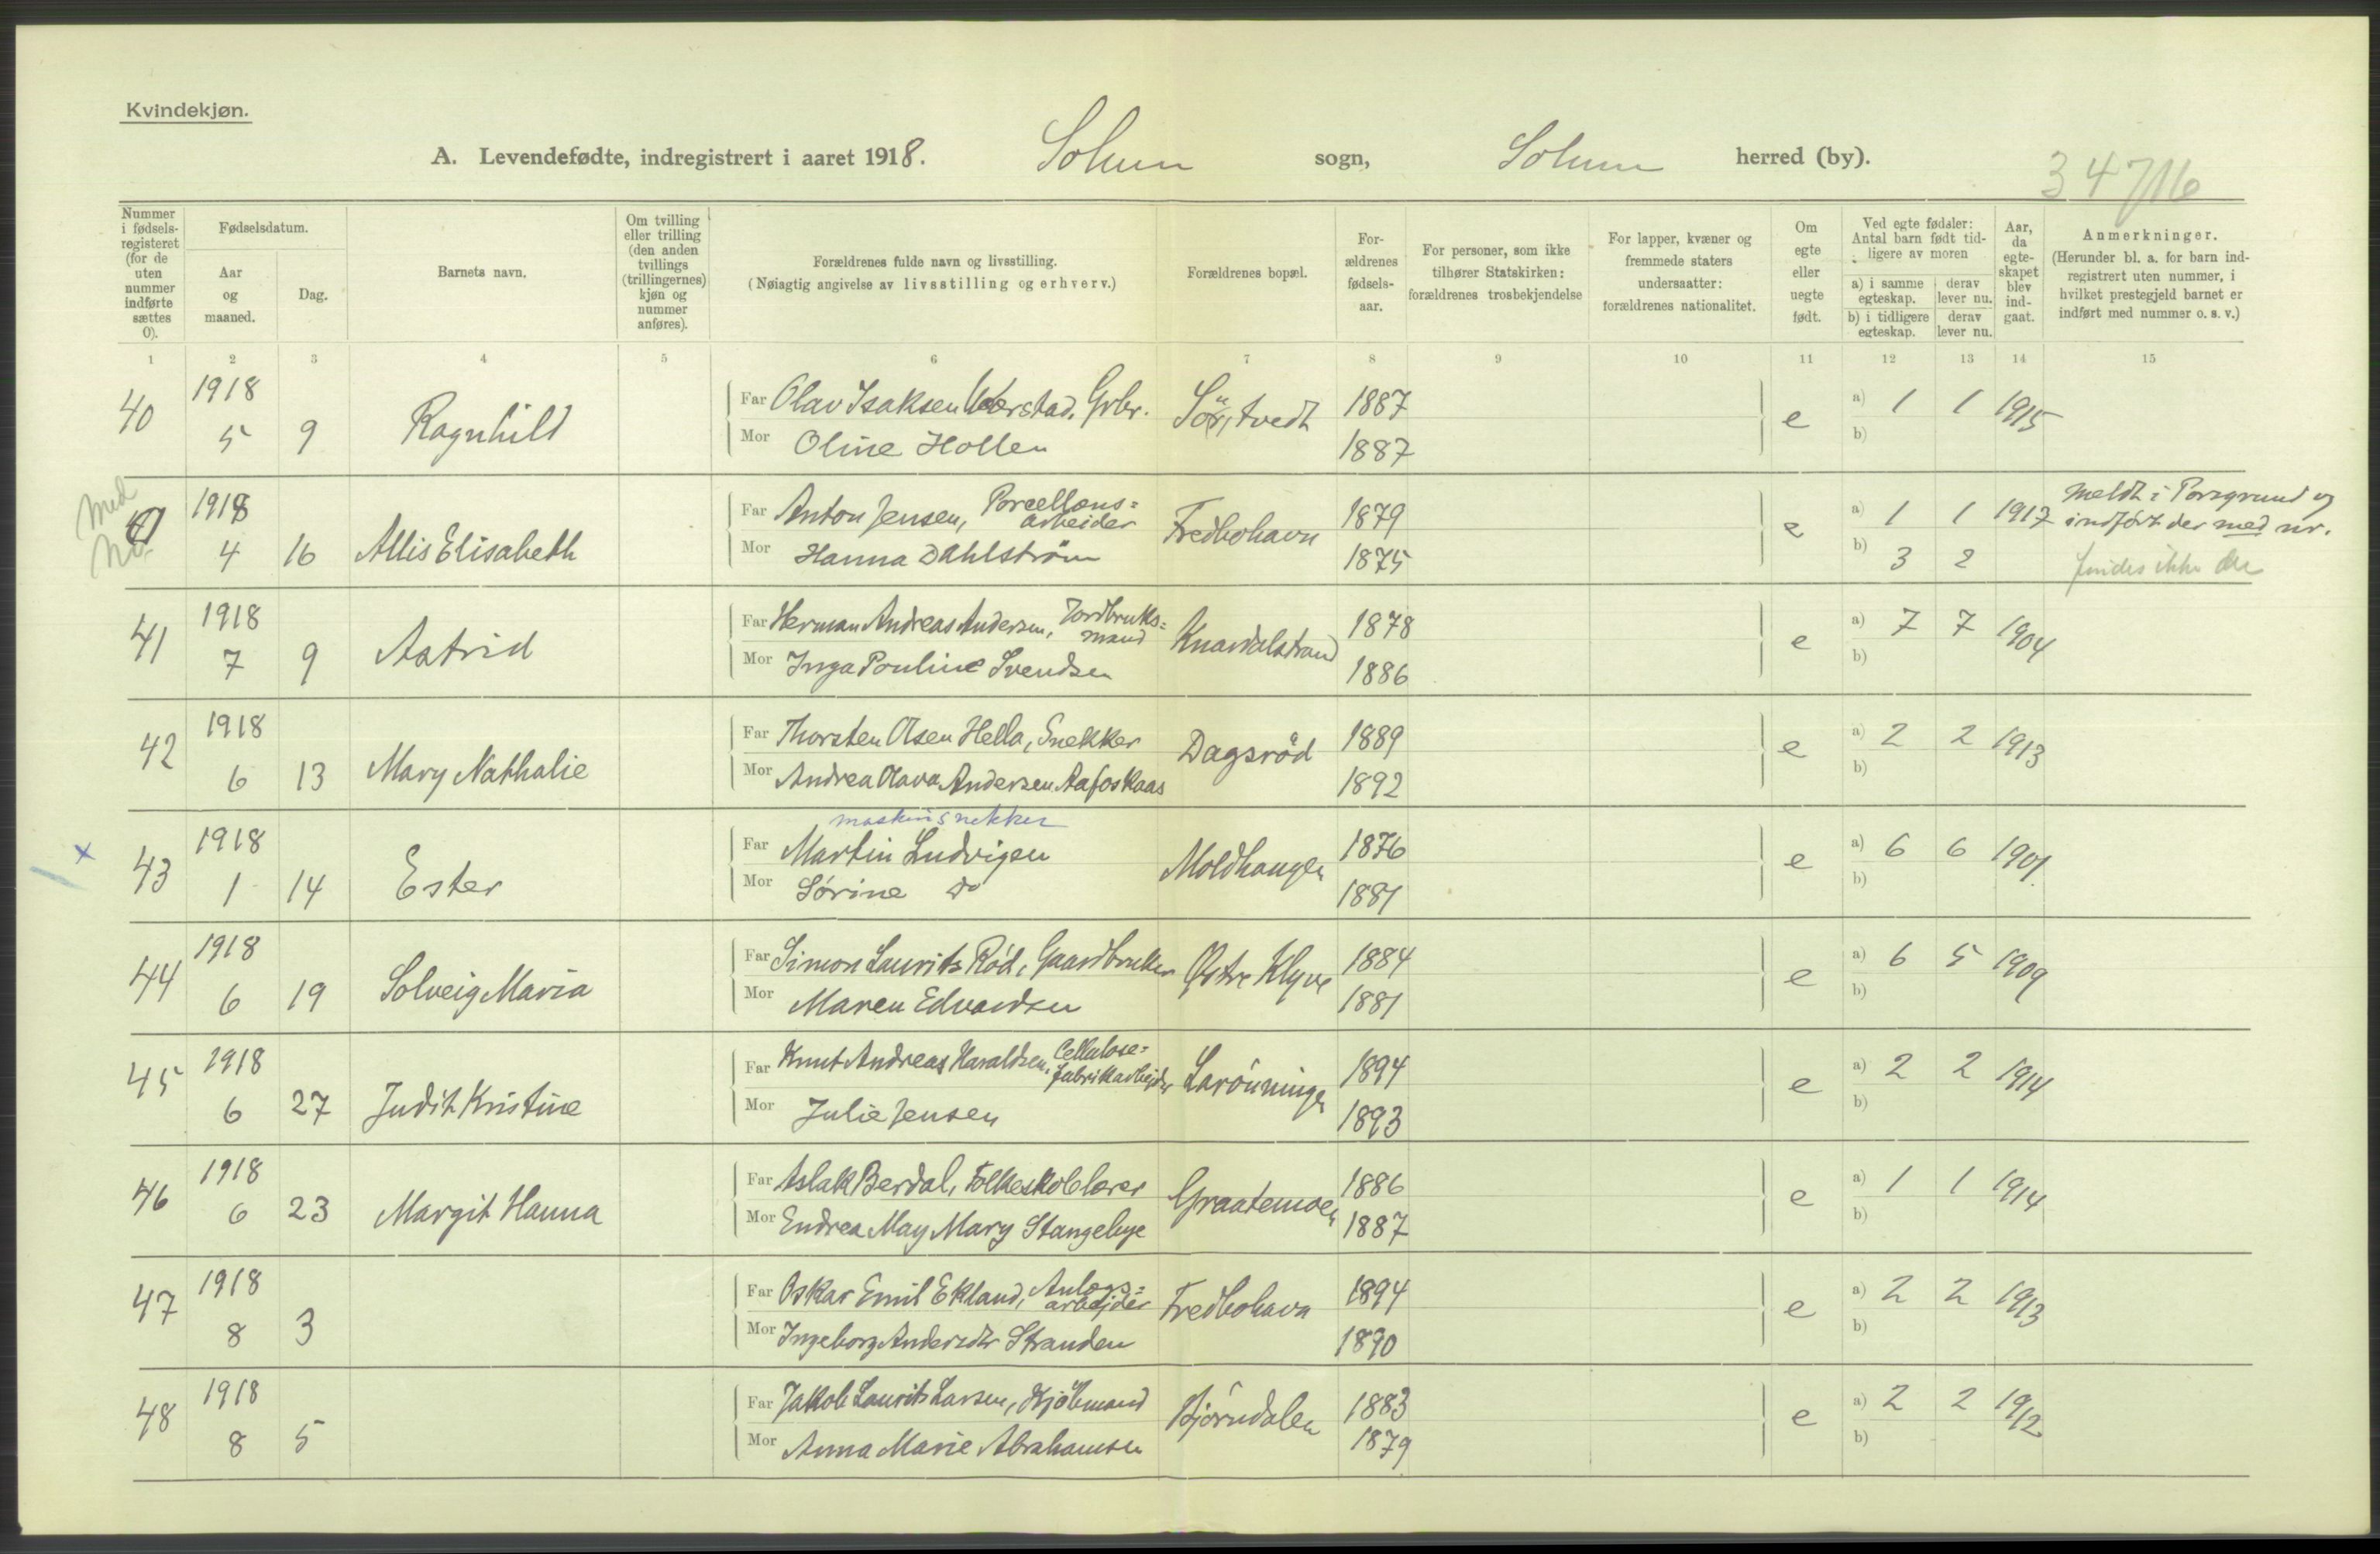 Kvindekjøn.
A. Levendefødte, indregistrert i aaret 1918. Solum sogn, Solum herred (by).
34716
Nummer i fødsels-registeret (for de uten nummer indførte sættes 0).
Fødselsdatum.
Aar og maaned.
Dag.
Barnets navn.
Om tvilling eller trilling (den anden tvillings (trillingernes) kjøn og nummer anføres).
Forældrenes fulde navn og livsstilling.
(Nøiagtig angivelse av livsstilling og erhverv.)
Forældrenes bopæl.
For-ældrenes fødsels-aar.
For personer, som ikke tilhører Statskirken: forældrenes trosbekjendelse
For lapper, kvæner og fremmede staters undersaatter: forældrenes nationalitet.
Om egte eller uegte født.
Ved egte fødsler: Antal barn født tid-ligere av moren
a) i samme egteskap.
derav lever nu.
b) i tidligere egteskap.
derav lever nu.
Aar, da egte-skapet blev ind-gaat.
Anmerkninger.
(Herunder bl. a. for barn ind-registrert uten nummer, i hvilket prestegjeld barnet er indført med nummer o. s. v.)
1 2 3 4 5 6 7 8 9 10 11 12 13 14 15
40 1918 5 9 Ragnhild
Far Olav Isaksen Værstad, Grbr. Sörtvedt 1887 e a) 1 1 1915
Mor Oline Hollen 1887 b)
Med No. 0 1918 4 16 Allis Elisabeth
Far Anton Jensen, Porcellæns=arbeider Fredbohavn 1879 e a) 1 1 1917 meldt i Porsgrund og indført der med nr.
Mor Hanna Dahlström 1875 b) 3 2 findes ikke der
41 1918 7 9 Astrid
Far Herman Andreas Andersen, Jordbruks=mand Knardalstrand 1878 e a) 7 7 1904
Mor Inga Pouline Svendsen 1886 b)
42 1918 6 13 Mary Nathalie
Far Thorsten Olsen Hella, Snekker Dagsrød 1889 e a) 2 2 1913
Mor Andrea Olava Andersen Aafoskaas 1892 b)
maskinsnekker
x 43 1918 1 14 Ester
Far Martin Ludvigsen Moldhaugen 1876 e a) 6 6 1901
Mor Sörine Do 1881 b)
44 1918 6 19 Solveig Maria
Far Simon Laurits Rød, Gaardbruker Østre Klyve 1884 e a) 6 5 1909
Mor Maren Edvardsen 1881 b)
45 1918 6 27 Judit Kristine
Far Knut Andreas Haraldsen, Cellulose=fabrikarbejder Larönningen 1894 e a) 2 2 1914
Mor Julie Jensen 1893 b)
46 1918 6 23 Margit Hanna
Far Aslak Berdal, Folkeskolelærer Graatemoen 1886 e a) 1 1 1914
Mor Endrea May Mary Stangebye 1887 b)
47 1918 8 3
Far Oskar Emil Ekland, Anlægs=arbejder Fredbohavn 1894 e a) 2 2 1913
Mor Ingeborg Andersdtr Stranden 1890 b)
48 1918 8 5
Far Jakob Laurits Larsen, Kjöbmand Bjørndalen 1883 e a) 2 2 1912
Mor Anna Marie Abrahamsen 1879 b)